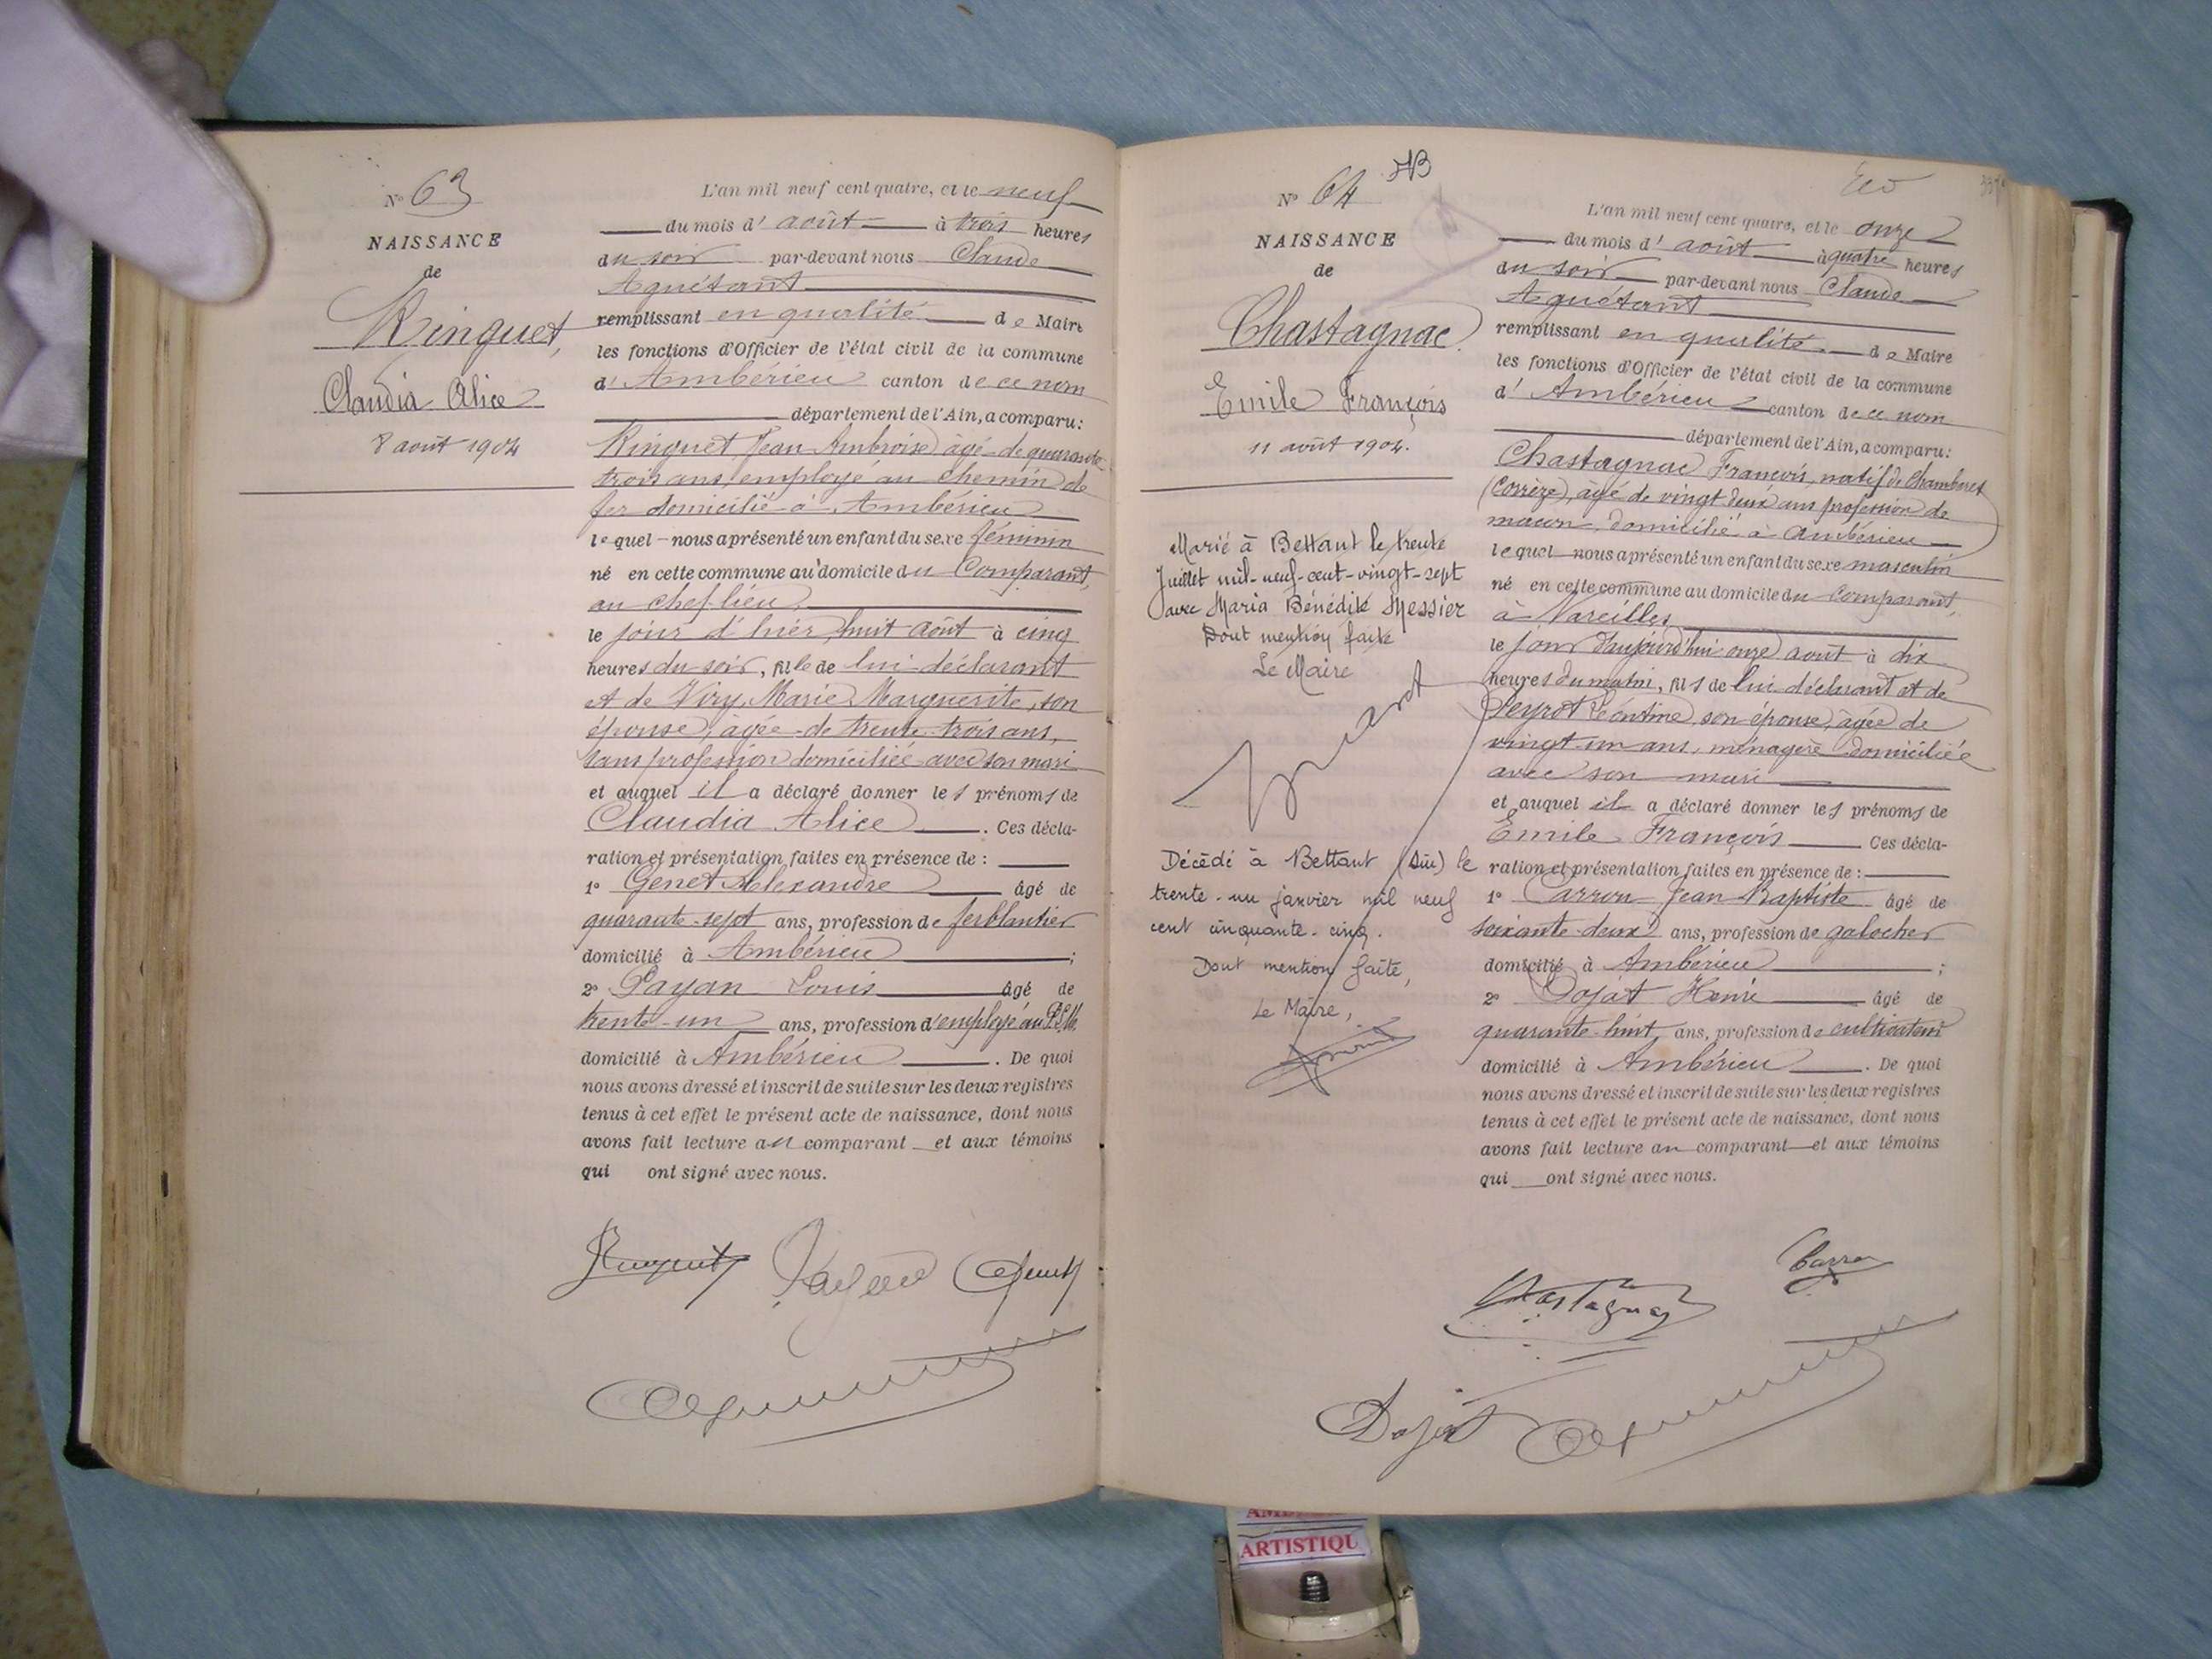 N° 63
NAISSANCE
de
Ringuet,
Claudia Alice
8 août 1904
L'an mil neuf cent quatre, et le neuf
du mois d' août à trois heures
du soir par-devant nous Claude
Aguétant
remplissant en qualité de Maire
les fonctions d'Officier de l'état civil de la commune
d' Ambérieu canton de ce nom
département de l'Ain, a comparu:
Ringuet Jean Ambroise âgé de quarante
trois ans, employé au chemin de
fer domicilié à Ambérieu
lequel nous a présenté un enfant du sexe féminin
né en cette commune au domicile du Comparant,
au chef-lieu,
le jour d'hier, huit août à cinq
heures du soir, fille de lui déclarant
et de Viry, Marie Marguerite, son
épouse, âgée de trente-trois ans,
sans profession domiciliée avec son mari
et auquel il a déclaré donner les prénoms de
Claudia Alice . Ces décla-
ration et présentation faites en présence de :
1° Genet Alexandre âgé de
quarante-sept ans, profession de ferblantier
domicilié à Ambérieu ;
2° Payan Louis âgé de
trente-un ans, profession d'employé au P.L.M.
domicilié à Ambérieu . De quoi
nous avons dressé et inscrit de suite sur les deux registres
tenus à cet effet le présent acte de naissance, dont nous
avons fait lecture au comparant et aux témoins
qui ont signé avec nous.
N° 64
NAISSANCE
de
Chastagnac
Emile François
11 août 1904.
Marié à Bettant le trente
Juillet mil-neuf-cent-vingt-sept
avec Maria Bénédite Messier
Dont mention faite
Le Maire
Décédé à Bettant (Ain) le
trente-un janvier mil neuf
cent cinquante-cinq.
Dont mention faite,
Le Maire,
L'an mil neuf cent quatre, et le onze
du mois d' août à quatre heures
du soir par-devant nous Claude
Aguétant
remplissant en qualité de Maire
les fonctions d'Officier de l'état civil de la commune
d' Ambérieu canton de ce nom
département de l'Ain, a comparu:
Chastagnac François, natif de Chamberet
(Corrèze), âgé de vingt deux ans profession de
maçon domicilié à Ambérieu
lequel nous a présenté un enfant du sexe masculin
né en cette commune au domicile du Comparant,
à Vareilles,
le jour d'aujourd'hui onze août à dix
heures du matin, fils de lui déclarant et de
Peyrot Léontine, son épouse, âgée de
vingt-un ans, ménagère domiciliée
avec son mari
et auquel il a déclaré donner les prénoms de
Emile François Ces décla-
ration et présentation faites en présence de :
1° Carron Jean Baptiste âgé de
soixante-deux ans, profession de galocher
domicilié à Ambérieu ;
2° Dojat Henri âgé de
quarante-huit ans, profession de cultivateur
domicilié à Ambérieu . De quoi
nous avons dressé et inscrit de suite sur les deux registres
tenus à cet effet le présent acte de naissance, dont nous
avons fait lecture au comparant et aux témoins
qui ont signé avec nous.
Chastagnac
Carron
Dojat
ARTISTIQU